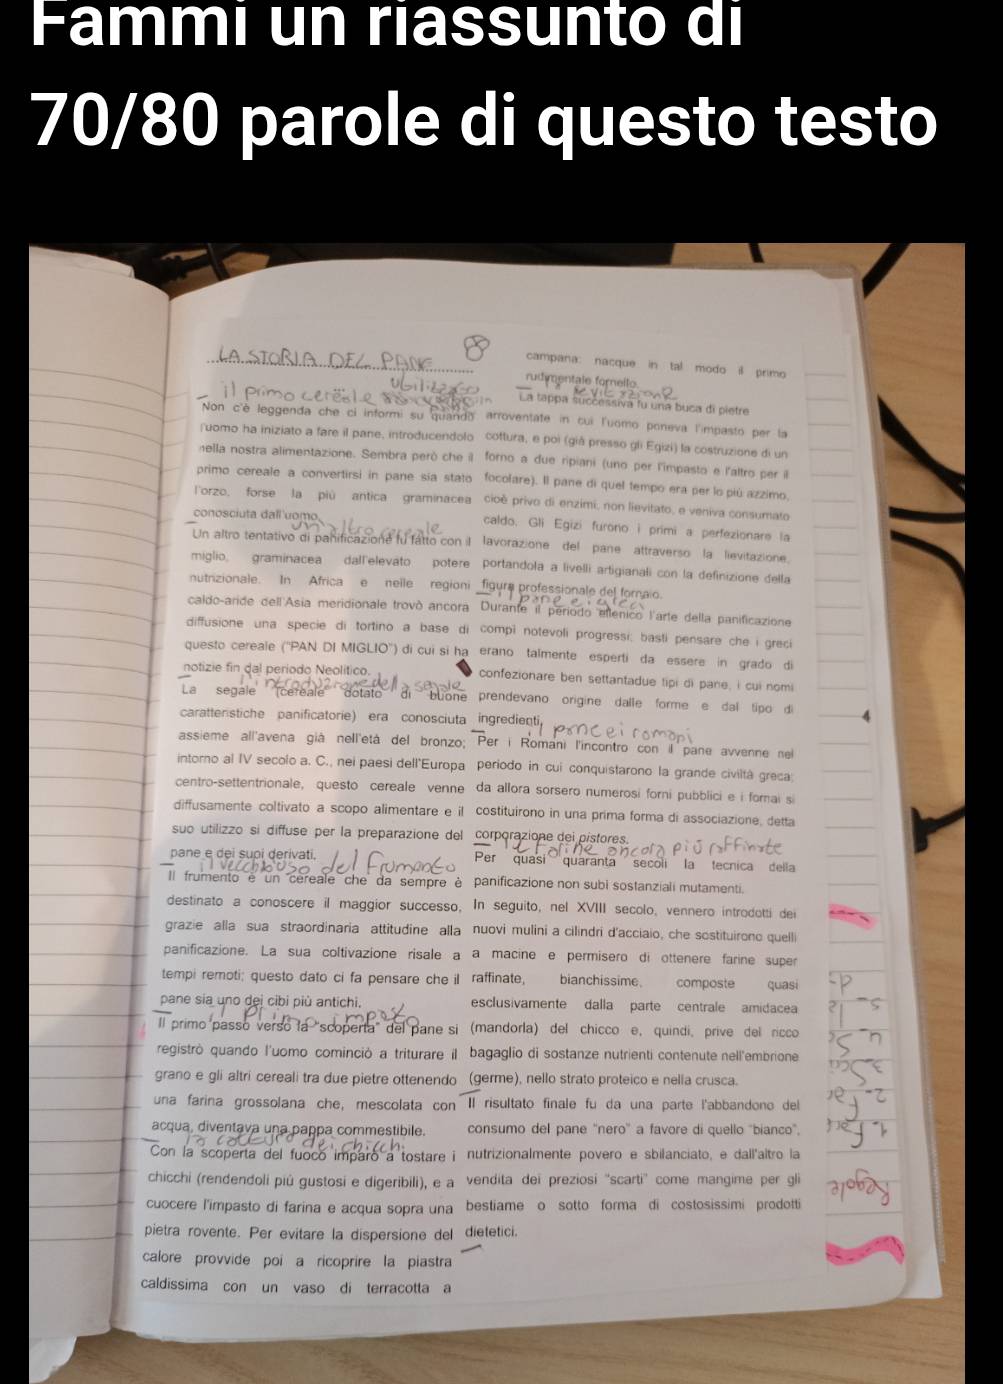 Fammi un riassunto di
70/80 parole di questo testo
LA STORIA DEL PANE
il primo cereale
Non c'è leggenda che ci informi su quando
l'uomo ha iniziato a fare il pane, introducendolo
nella nostra alimentazione. Sembra però che il
primo cereale a convertirsi in pane sia stato
l'orzo, forse la più antica graminacea
conosciuta dall'uomo.
un altro cereale
Un altro tentativo di panificazione fu fatto con il
miglio, graminacea dall'elevato potere
nutrizionale. In Africa e nelle regioni
caldo-aride dell'Asia meridionale trovò ancora
diffusione una specie di tortino a base di
questo cereale ("PAN DI MIGLIO") di cui si ha
notizie fin dal periodo Neolitico.
l'introduzione della segale
La segale (cereale dotato di buone
caratteristiche panificatorie) era conosciuta
assieme all'avena già nell'età del bronzo;
intorno al IV secolo a. C., nei paesi dell'Europa
centro-settentrionale, questo cereale venne
diffusamente coltivato a scopo alimentare e il
suo utilizzo si diffuse per la preparazione del
pane e dei suoi derivati.
il vecchio uso del frumento
Il frumento è un cereale che da sempre è
destinato a conoscere il maggior successo,
grazie alla sua straordinaria attitudine alla
panificazione. La sua coltivazione risale a
tempi remoti; questo dato ci fa pensare che il
pane sia uno dei cibi più antichi.
il primo impasto
Il primo passo verso la "scoperta" del pane si
registrò quando l'uomo cominciò a triturare il
grano e gli altri cereali tra due pietre ottenendo
una farina grossolana che, mescolata con
acqua, diventava una pappa commestibile.
la cottura dei chicchi
Con la scoperta del fuoco imparò a tostare i
chicchi (rendendoli più gustosi e digeribili), e a
cuocere l'impasto di farina e acqua sopra una
pietra rovente. Per evitare la dispersione del
calore provvide poi a ricoprire la piastra
caldissima con un vaso di terracotta a
campana: nacque in tal modo il primo
rudimentale fornello.
La tappa successiva fu una buca di pietre
arroventate in cui l'uomo poneva l'impasto per la
cottura, e poi (già presso gli Egizi) la costruzione di un
forno a due ripiani (uno per l'impasto e l'altro per il
focolare). Il pane di quel tempo era per lo più azzimo,
cioè privo di enzimi, non lievitato, e veniva consumato
caldo. Gli Egizi furono i primi a perfezionare la
lavorazione del pane attraverso la lievitazione,
portandola a livelli artigianali con la definizione della
figura professionale del fornaio.
il pane e i greci
Durante il periodo ellenico l'arte della panificazione
compì notevoli progressi; basti pensare che i greci
erano talmente esperti da essere in grado di
confezionare ben settantadue tipi di pane, i cui nomi
prendevano origine dalle forme e dal tipo di
ingredienti.
il pane e i romani
Per i Romani l'incontro con il pane avvenne nel
periodo in cui conquistarono la grande civiltà greca;
da allora sorsero numerosi forni pubblici e i fornai si
costituirono in una prima forma di associazione, detta
corporazione dei pistores.
le farine ancora più raffinate
Per quasi quaranta secoli la tecnica della
panificazione non subì sostanziali mutamenti.
In seguito, nel XVIII secolo, vennero introdotti dei
nuovi mulini a cilindri d'acciaio, che sostituirono quelli
a macine e permisero di ottenere farine super
raffinate, bianchissime, composte quasi
esclusivamente dalla parte centrale amidacea
(mandorla) del chicco e, quindi, prive del ricco
bagaglio di sostanze nutrienti contenute nell'embrione
(germe), nello strato proteico e nella crusca.
Il risultato finale fu da una parte l'abbandono del
consumo del pane "nero" a favore di quello "bianco",
nutrizionalmente povero e sbilanciato, e dall'altro la
vendita dei preziosi "scarti" come mangime per gli
bestiame o sotto forma di costosissimi prodotti
dietetici.
Regole